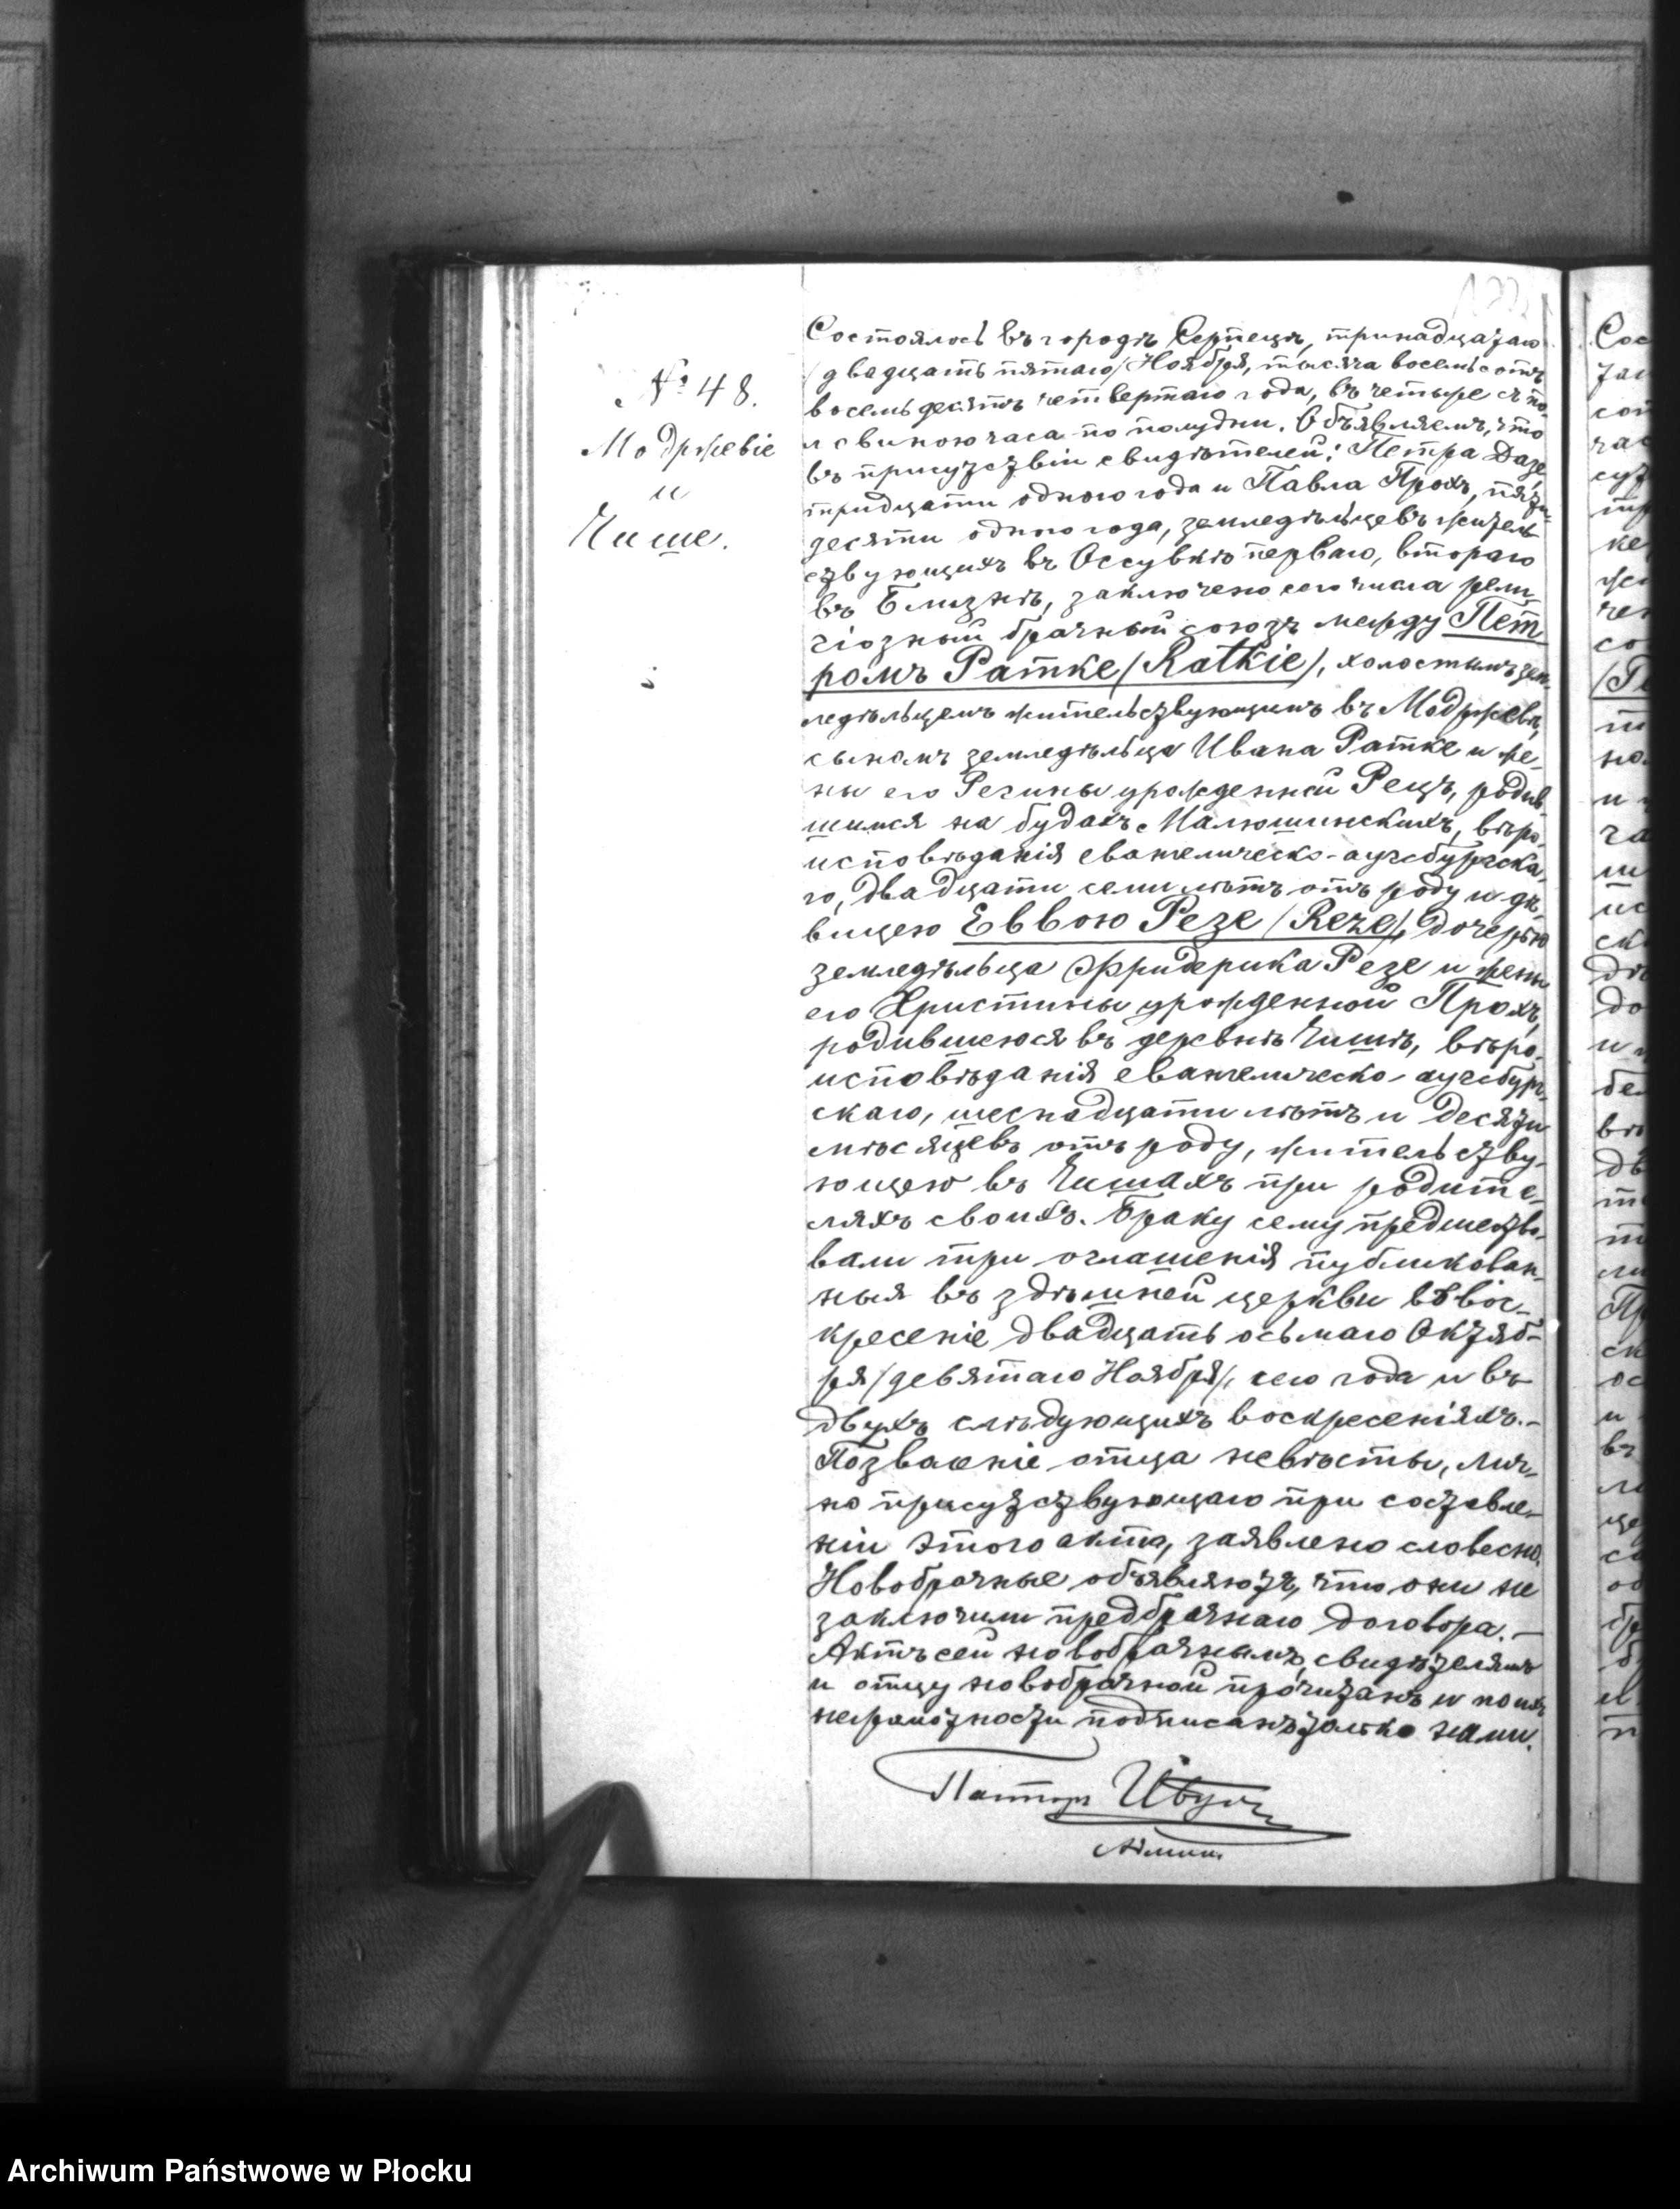 № 48.
Модржевіе
и
Чише.
Состоялось въ городѣ Серпецѣ, тринадцатаго
/двадцать пятаго/ Ноября, тысяча восемьсотъ
восемьдесятъ четвертаго года, въ четыре съ по-
ловиною часа по полудни. Объявляемъ, что
въ присутствіи свидѣтелей: Петра Дазе,
тридцати одного года и Павла Прохъ, пяти-
десяти одного года, земледѣльцевъ житель-
ствующихъ въ Оссувкѣ перваго, втораго
въ Близнѣ, заключено сего числа рели-
гіозный брачный союзъ между Пет
ромъ Ратке /Ratkie/, холостымъ зем-
ледѣльцемъ жительствующимъ въ Модржевѣ,
сыномъ земледѣльца Ивана Ратке и же-
ны его Регины урожденной Рецъ, родив-
шимся на будахъ Малюшинскихъ, вѣро-
исповѣданія евангелическо-аугсбургска-
го, двадцати семи лѣтъ отъ роду и дѣ-
вицею Еввою Резе /Reze/, дочерью
земледѣльца Фридерика Резе и жены
его Христины урожденной Прохъ,
родившеюся въ деревнѣ Чишѣ, вѣро-
исповѣданія евангелическо-аугсбург-
скаго, шеснадцати лѣтъ и десяти
мѣсяцевъ отъ роду, жительству-
ющею въ Чишахъ при родите-
ляхъ своихъ. Браку сему предшество-
вали три оглашенія публикован-
ныя въ здѣшней церкви въ вос-
кресеніе двадцать осьмаго Октяб-
ря /девятаго Ноября/, сего года и въ
двухъ слѣдующихъ воскресеніяхъ.-
Позваленіе отца невѣсты, лич-
но присутствующаго при составле-
ніи этого акта, заявлено словесно.
Новобрачные объявляютъ, что они не
заключили предбрачнаго договора.-
Актъ сей новобрачнымъ, свидѣтелямъ
и отцу новобрачной прочитанъ и по ихъ
неграмотности подписанъ только нами.
Пасторъ
Админ.
Archiwum Państwowe w Płocku